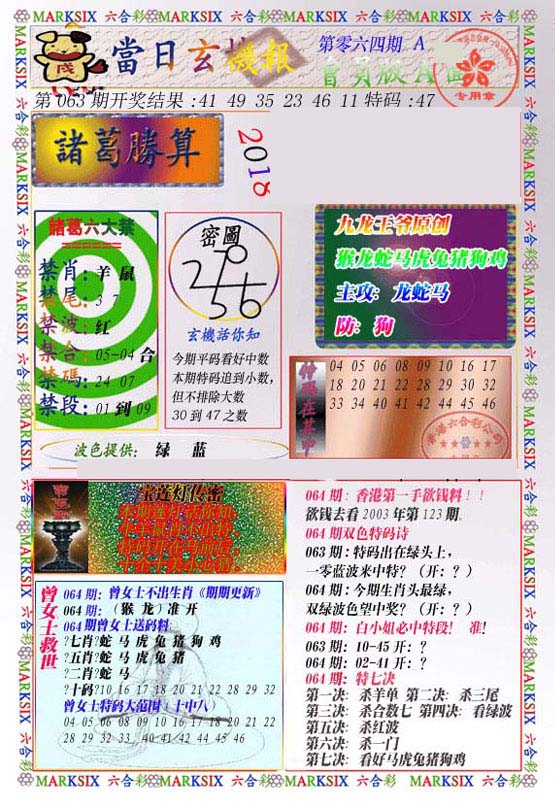 MARKSIX 六合彩 MARKSIX 六合彩 MARKSIX 六合彩 MARKSIX 六合彩 MARKSIX
當日玄機報
第零六四期 A
會員版 A 面
专用章
第 063 期开奖结果 :41 49 35 23 46 11 特码 :47
諸葛勝算
2018
諸葛六大禁
禁肖: 羊 鼠
禁尾: 3 7
禁波: 红
禁合: 05-04 合
禁碼: 24 07
禁段: 01 到 09
密圖
玄機話你知
今期平码看好中数
本期特码追到小数,
但不排除大数
30 到 47 之数
九龙王爷原创
猴龙蛇马虎兔猪狗鸡
主攻: 龙蛇马
防: 狗
特码在其中
04 05 06 08 09 10 16 17
18 20 21 22 28 29 30 32
33 34 40 41 42 44 45 46
波色提供: 绿 蓝
宝莲灯传密
曾女士救世
064 期: 曾女士不出生肖《期期更新》
064 期: (猴 龙) 准 开
064 期曾女士送码料:
?七肖?蛇 马 虎 兔 猪 狗 鸡
?五肖?蛇 马 虎 兔 猪
?二肖?蛇 马
?十码?10 16 17 18 20 21 22 28 29 32
曾女士特码大范围 (十中八)
04 05 06 08 09 10 16 17 18 20 21 22
28 29 32 33 40 41 42 44 45 46
064 期: 香港第一手欲钱料!!
欲钱去看 2003 年第 123 期.
064 期双色特码诗
063 期: 特码出在绿头上,
一零蓝波来中特? (开: ? )
064 期: 今期生肖头最绿,
双绿波色望中奖? (开: ? )
064 期: 白小姐必中特段! 准!
063 期: 10-45 开: ?
064 期: 02-41 开: ?
064 期: 特七决
第一决: 杀羊单 第二决: 杀三尾
第三决: 杀合数七 第四决: 看绿波
第五决: 杀红波
第六决: 杀一门
第七决: 看好马虎兔猪狗鸡
MARKSIX 六合彩 MARKSIX 六合彩 MARKSIX 六合彩 MARKSIX 六合彩 MARKSIX